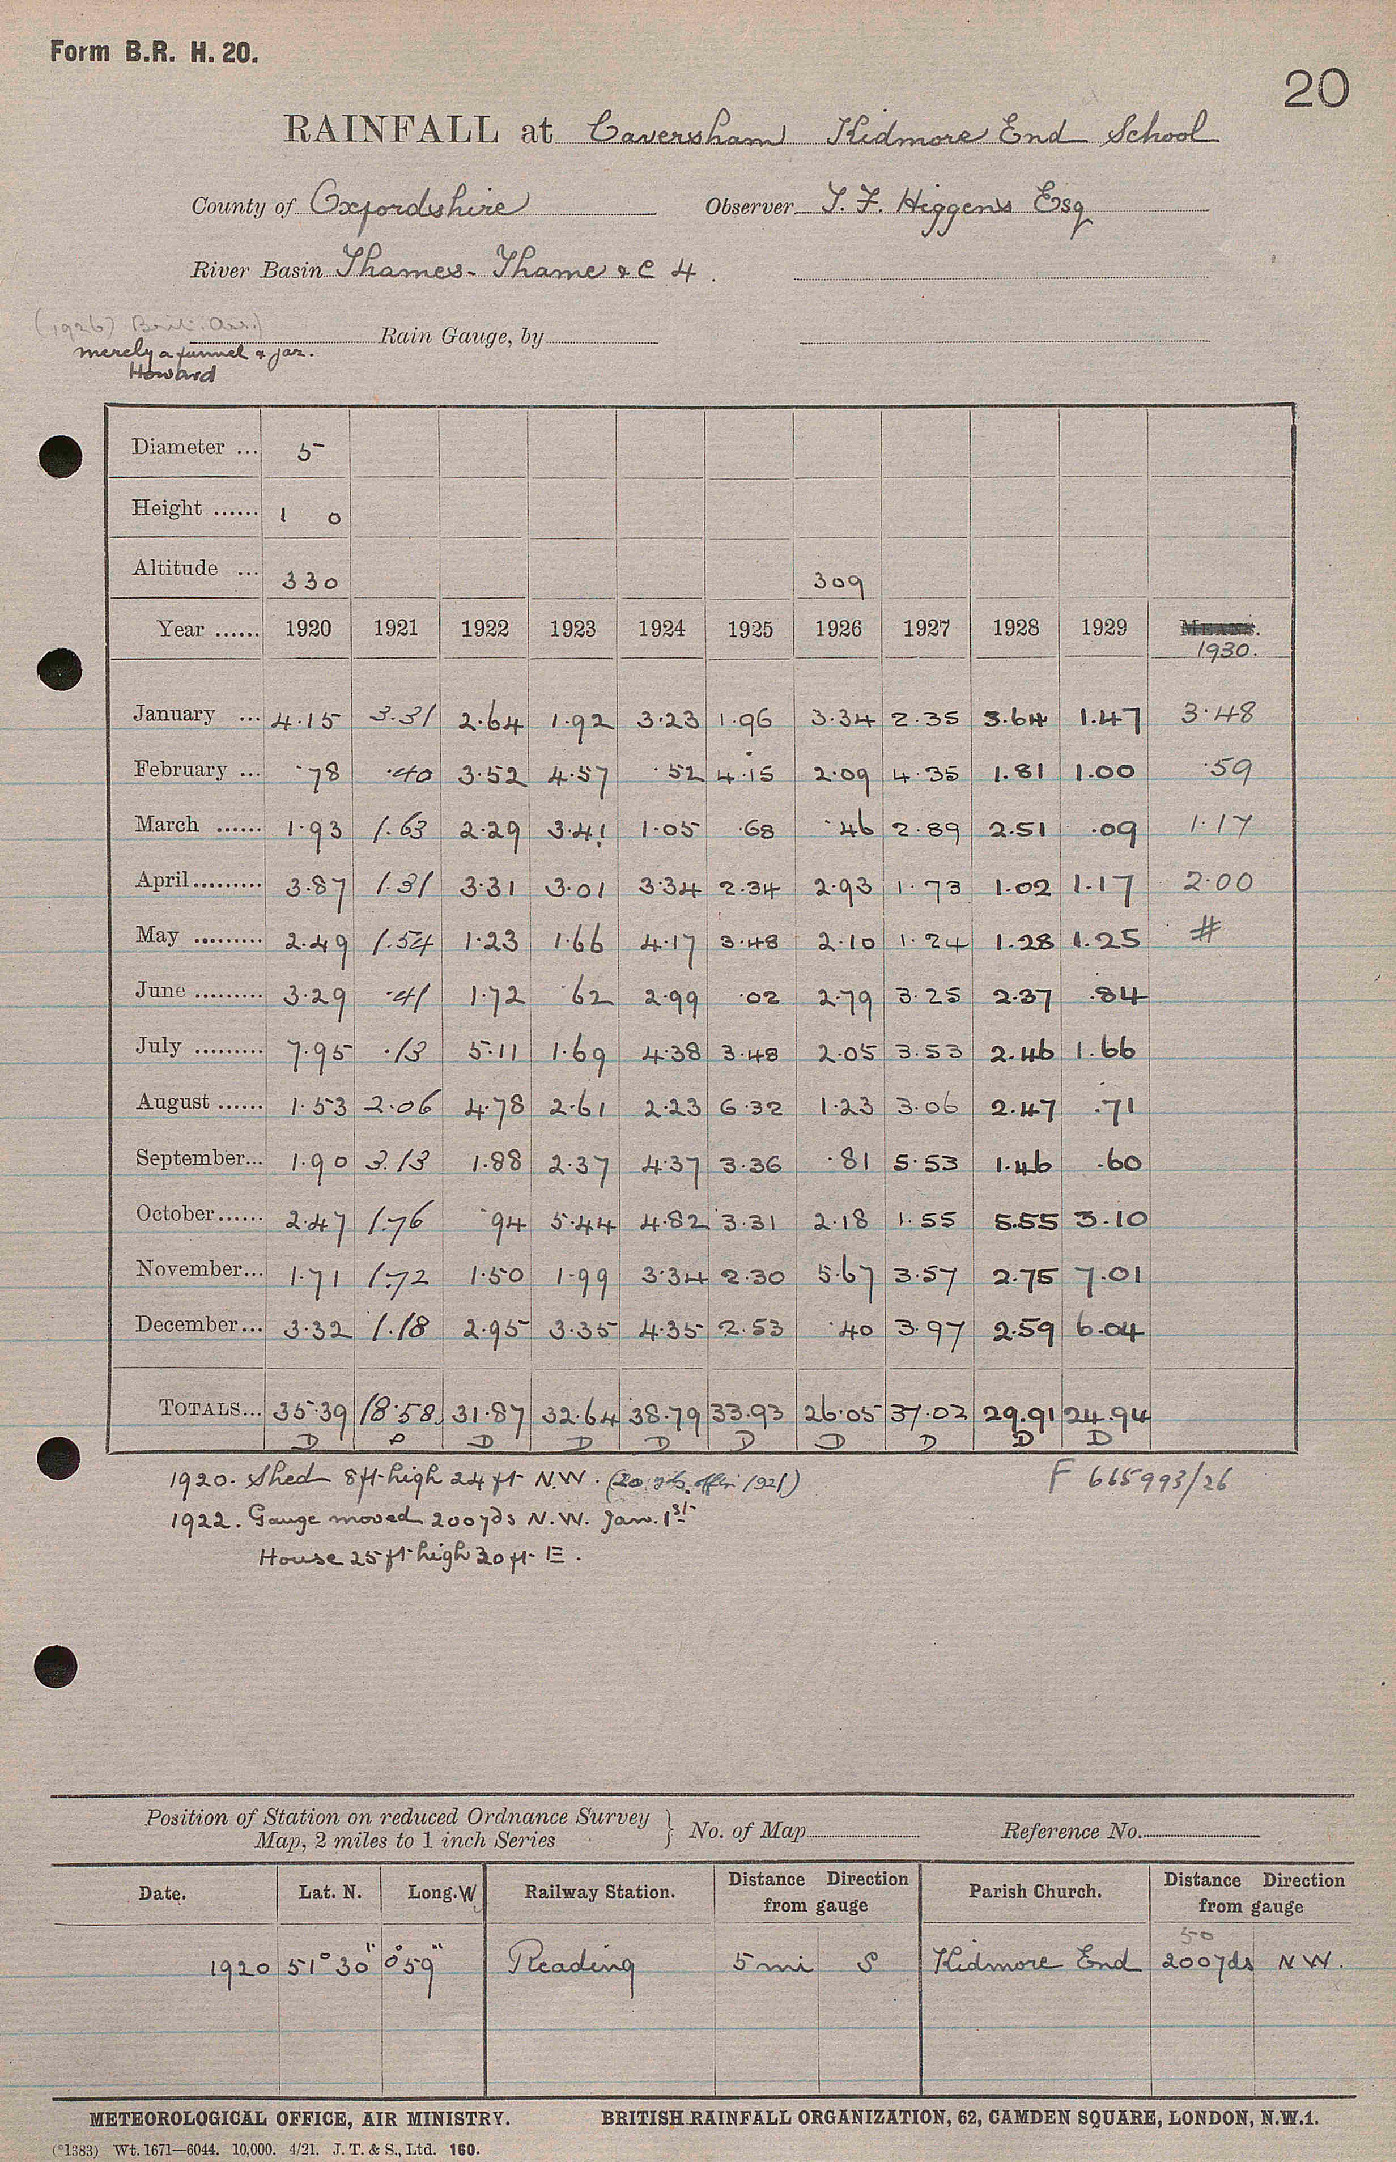 Form B.R. H. 20.
20
RAINFALL at Caversham Kidmore End School
County of Oxfordshire Observer T. F. Higgens Esq
River Basin Thames - Thame & C 4.
(1926)
Rain Gauge, by
merely a funnel & jar.
Howard
Diameter ... 5
Height ...... 1 0
Altitude ... 330 309
Year ...... 1920 1921 1922 1923 1924 1925 1926 1927 1928 1929 MEANS.
1930.
January ... 4.15 3.31 2.64 1.92 3.23 1.96 3.34 2.35 3.64 1.47 3.48
February ... .78 .40 3.52 4.57 .52 4.15 2.09 4.35 1.81 1.00 .59
March ...... 1.93 1.63 2.29 3.41 1.05 .68 .46 2.89 2.51 .09 1.17
April......... 3.87 1.31 3.31 3.01 3.34 2.34 2.93 1.73 1.02 1.17 2.00
May ......... 2.49 1.54 1.23 1.66 4.17 3.48 2.10 1.24 1.28 1.25 #
June ......... 3.29 .41 1.72 .62 2.99 .02 2.79 3.25 2.37 .84
July ......... 7.95 .13 5.11 1.69 4.38 3.48 2.05 3.53 2.46 1.66
August ...... 1.53 2.06 4.78 2.61 2.23 6.32 1.23 3.06 2.47 .71
September... 1.90 3.13 1.88 2.37 4.37 3.36 .81 5.53 1.46 .60
October...... 2.47 1.76 .94 5.44 4.82 3.31 2.18 1.55 5.55 3.10
November... 1.71 1.72 1.50 1.99 3.34 2.30 5.67 3.57 2.75 7.01
December... 3.32 1.18 2.95 3.35 4.35 2.53 .40 3.97 2.59 6.04
TOTALS... 35.39 18.58 31.87 32.64 38.79 33.93 26.05 37.02 29.91 24.94
D P D D D D D D D D
1920. Shed 8ft high 24 ft N.W. 1921) F 665993/26
1922. Gauge moved 200yds N.W. Jan. 1st
House 25 ft high 30 ft E.
Position of Station on reduced Ordnance Survey
Map, 2 miles to 1 inch Series } No. of Map Reference No.
Date. Lat. N. Long. W Railway Station. Distance Direction from gauge Parish Church. Distance Direction from gauge
50
1920 51° 30" 0° 59" Reading 5 mi S Kidmore End 200yds N W.
METEOROLOGICAL OFFICE, AIR MINISTRY. BRITISH RAINFALL ORGANIZATION, 62, CAMDEN SQUARE, LONDON, N.W.1.
(*1383) Wt. 1671—6044. 10,000. 4/21. J. T. & S., Ltd. 160.